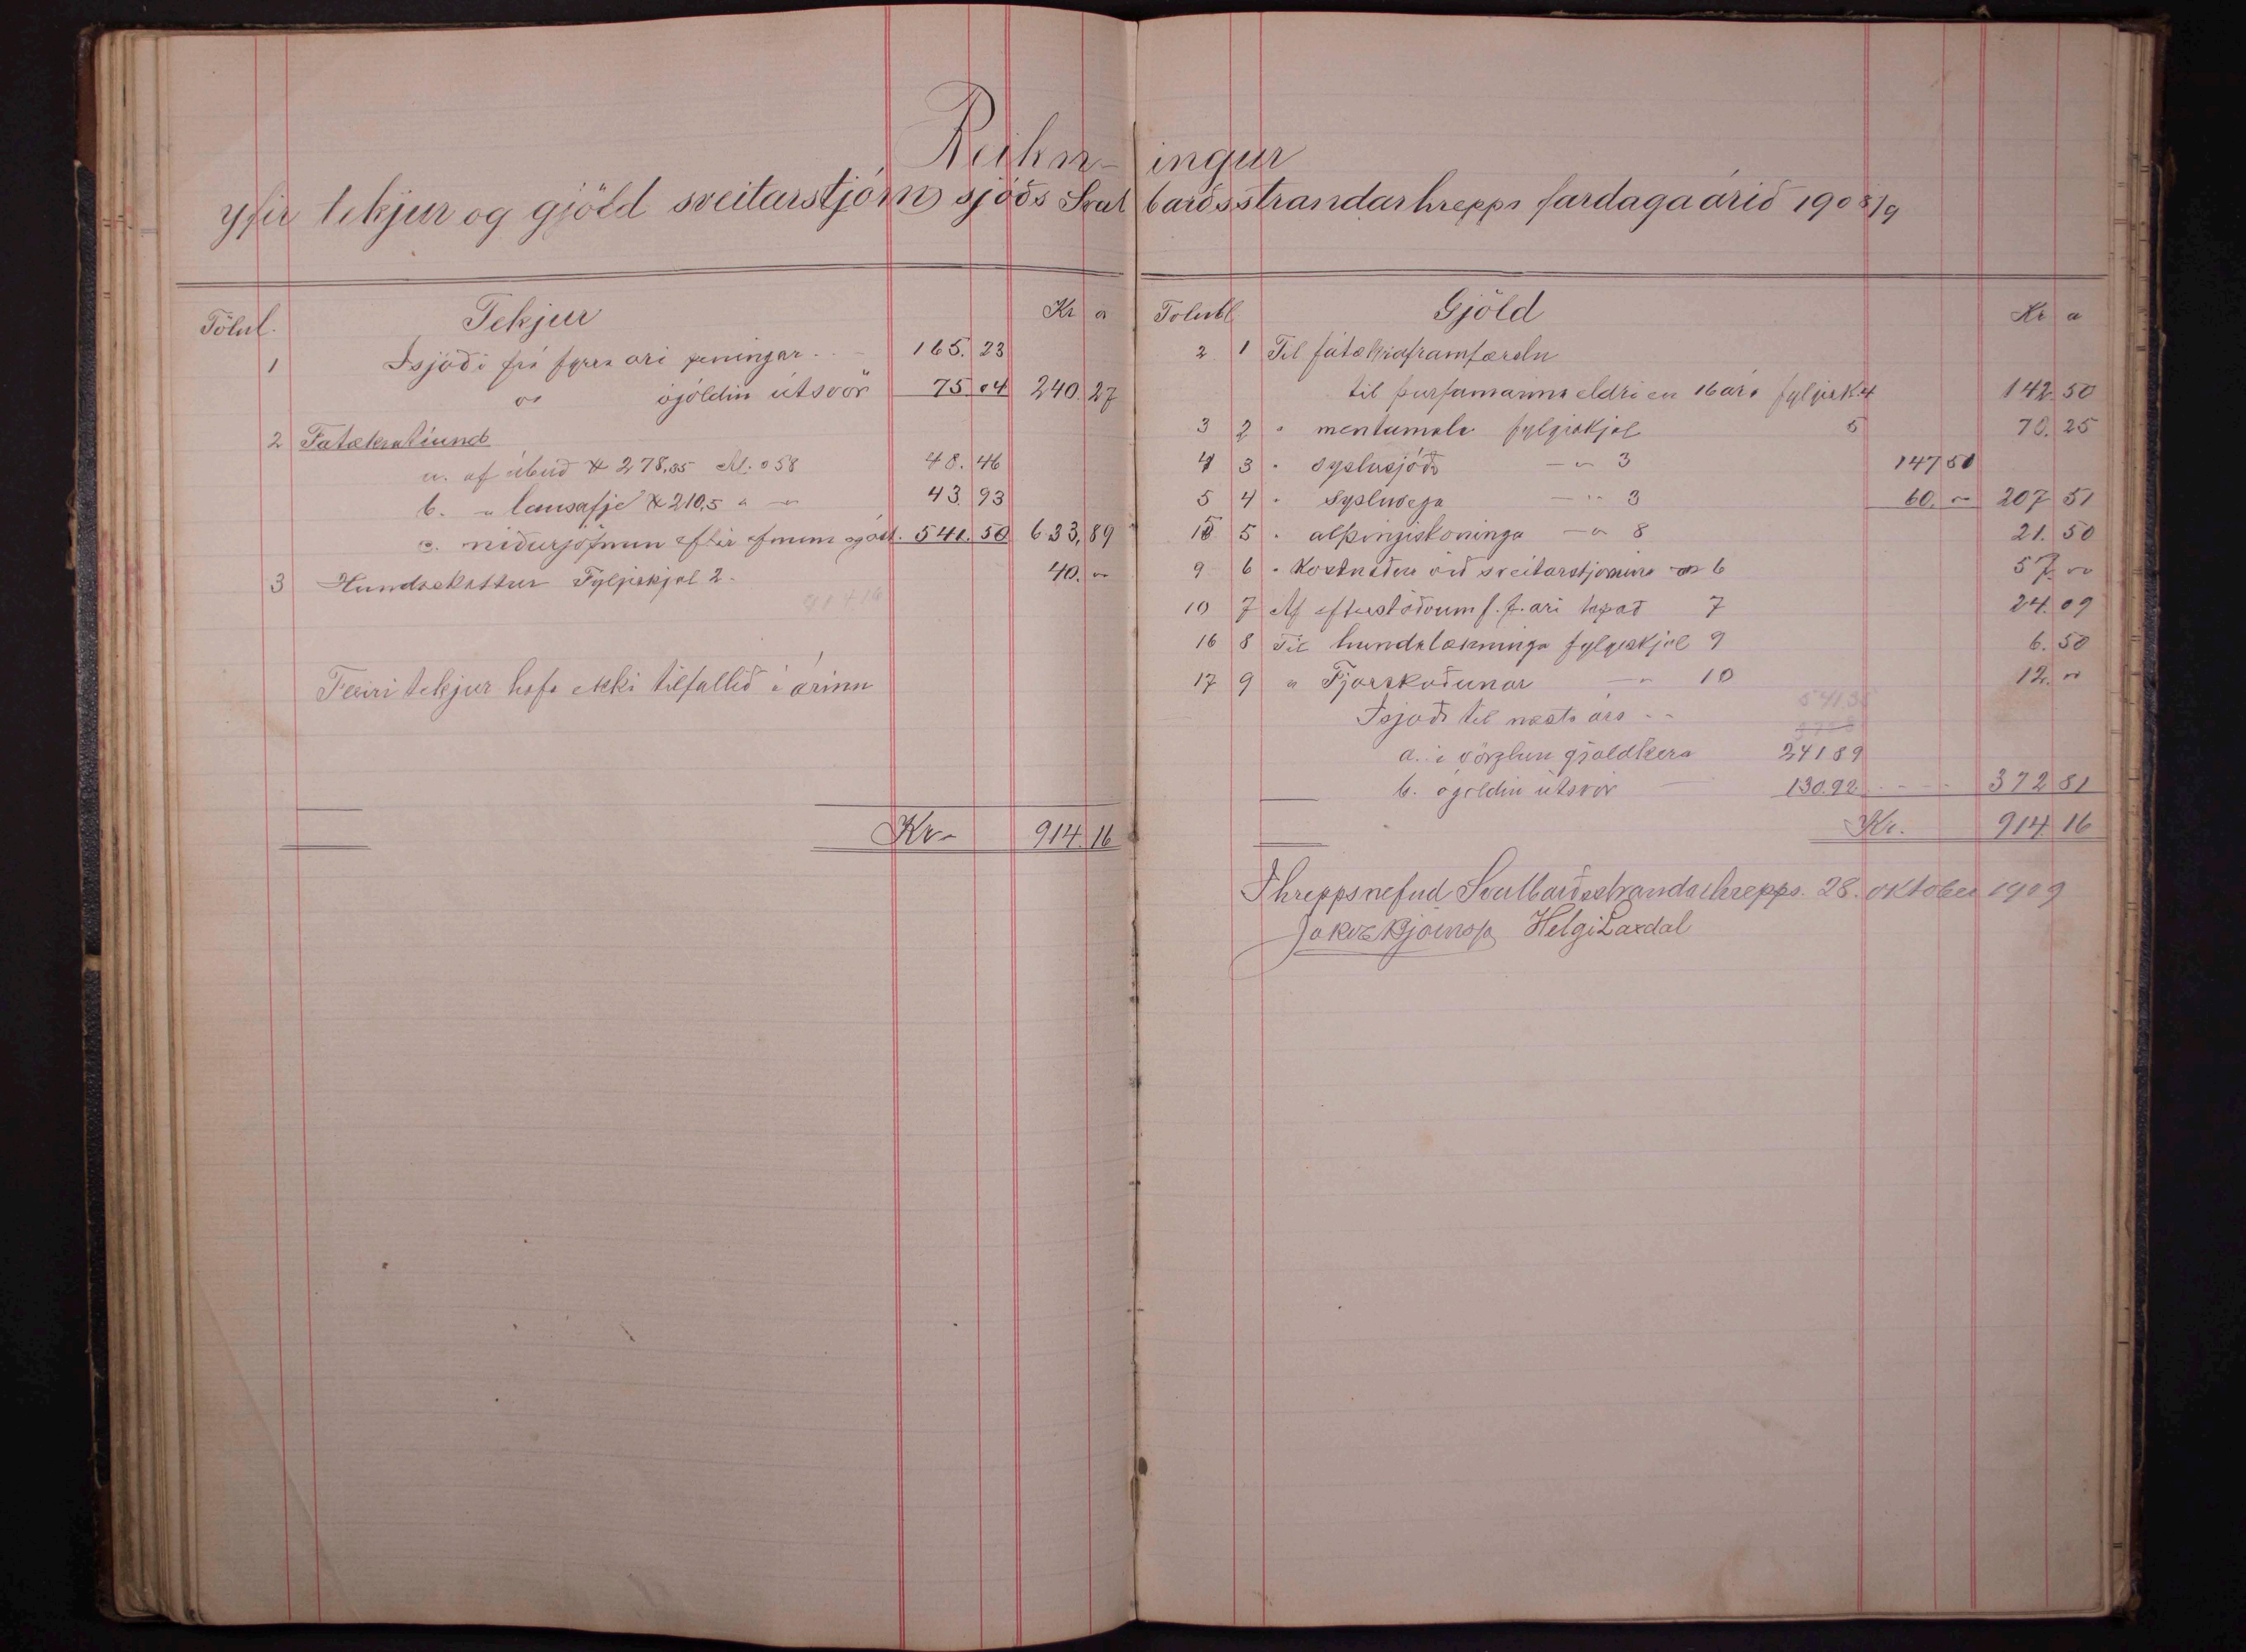 Reikn-ingur
yfir tekjur og gjöld sveitarstjórnsjóðs Svalbarðsstrandarhrepps fardagaárið 1908/9
Tölul. Tekjur Kr a
1 Í sjóði frá fyrra ári peningar 165.23
" ógoldin útsvör 75.04 240.27
2 Fátækratíund
a. af ábúð 278,35 Al. 058 48.46
b. " lausafje 210,5 " " 43.93
c. niðurjöfnun eftir efnum og ást. 541.50 633,89
3 Hundaskattur Fylgiskjal 2. 40. "
914.16
Fleiri tekjur hafa ekki tilfallið á árinu
Kr. 914.16
Tölubl Gjöld Kr a
2 1 Til fátækraframfærslu
til þurfamanna eldri en 16 ára fylgisk 4 142.50
3 2 " mentamála fylgiskjal 5 70.25
4 3 " sýslusjóðs — " 3 147 51
5 4 " sýsluvega — " 3 60. " 207 51
15 5 " alþingiskostninga — " 8 21.50
9 6 " Kostnaður við sveitarstjórnina — " 6 57. "
10 7 Af eftirstöðvum f. f. ári tapað 7 24.09
16 8 Til hundalækninga fylgiskjal 9 6.50
17 9 " Fjárskoðunar — " 10 12. "
541.35
Í sjóði til næsta árs
a. í vörzlum gjaldkera 241 89
b. ógoldin útsvör 130.92 372 81
Kr. 914 16
Í hreppsnefnd Svalbarðsstrandarhrepps. 28. október 1909
Jakob Björnsson Helgi Laxdal